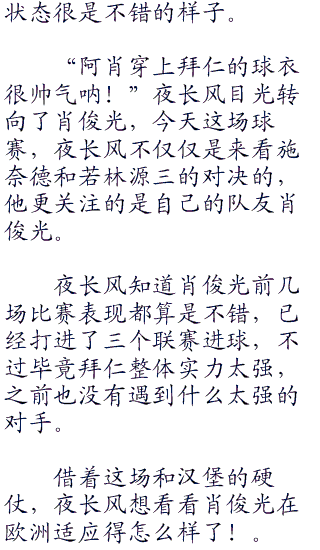 状态很是不错的样子。
“阿肖穿上拜仁的球衣
很帅气呐！”夜长风目光转
向了肖俊光，今天这场球
赛，夜长风不仅仅是来看施
奈德和若林源三的对决的，
他更关注的是自己的队友肖
俊光。
夜长风知道肖俊光前几
场比赛表现都算是不错，已
经打进了三个联赛进球，不
过毕竟拜仁整体实力太强，
之前也没有遇到什么太强的
对手。
借着这场和汉堡的硬
仗，夜长风想看看肖俊光在
欧洲适应得怎么样了！。